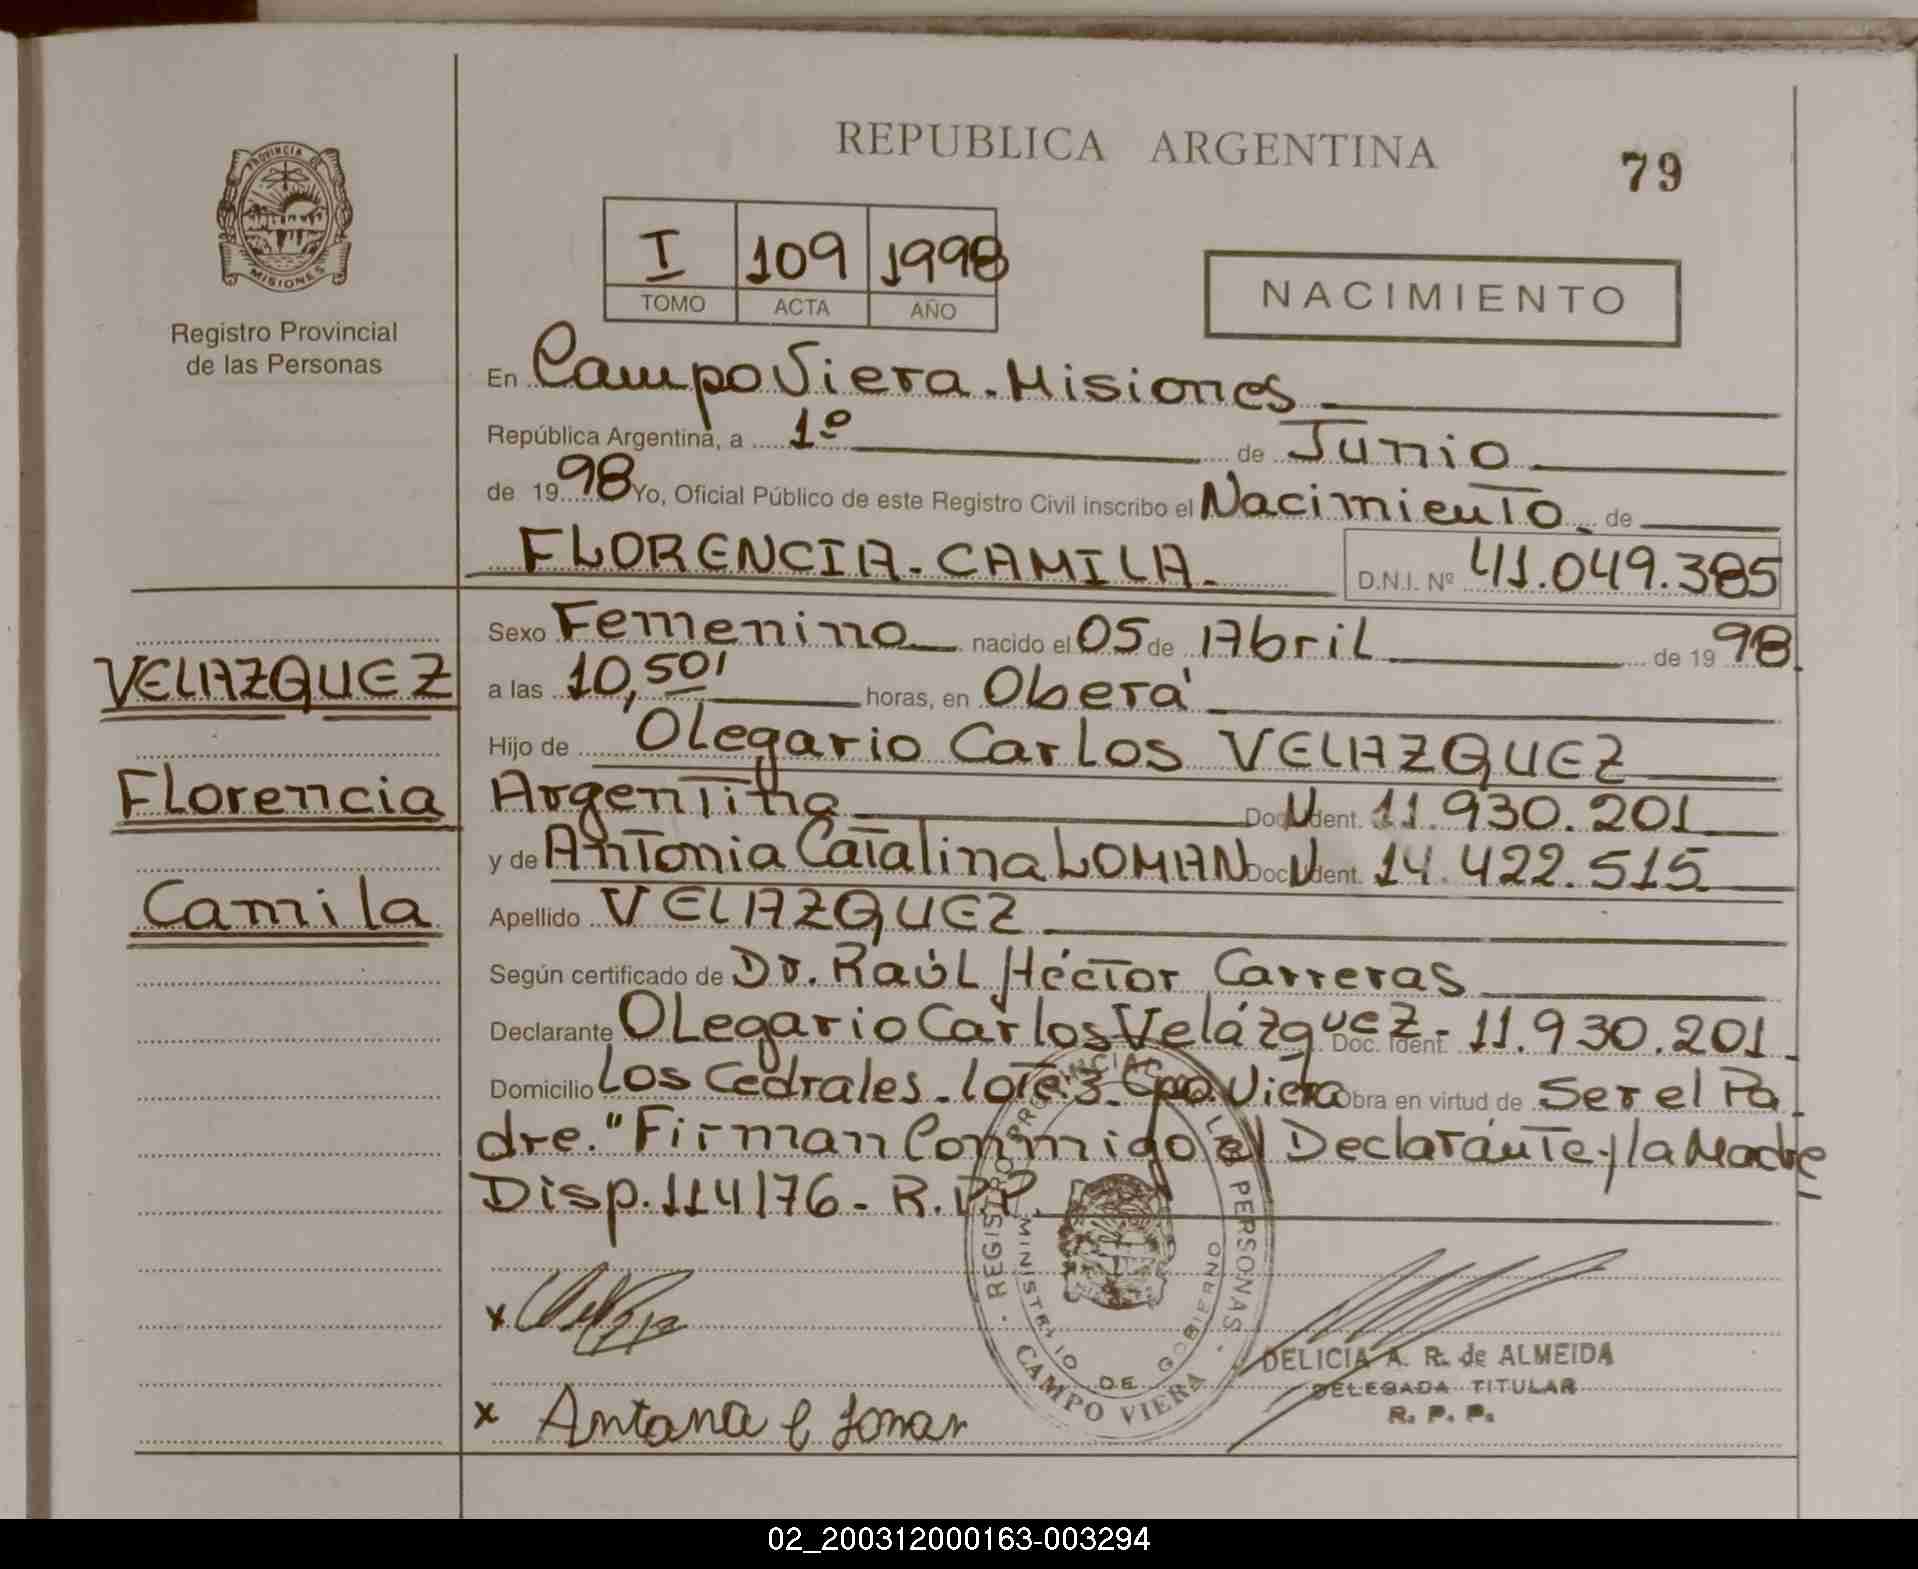 REPUBLICA ARGENTINA
79
PROVINCIA DE
MISIONES
Registro Provincial
de las Personas
I 109 1998
TOMO ACTA AÑO
NACIMIENTO
En Campo Viera - Misiones
República Argentina, a 1º de Junio
de 1998 Yo, Oficial Público de este Registro Civil inscribo el Nacimiento de
FLORENCIA - CAMILA - D.N.I. Nº 41.049.385
VELAZQUEZ
Florencia
Camila
Sexo Femenino nacido el 05 de Abril de 1998
a las 10,50' horas, en Oberá
Hijo de Olegario Carlos VELAZQUEZ
Argentina Doc. Ident. 11.930.201
y de Antonia Catalina LOMAN Doc. Ident. 14.422.515
Apellido VELAZQUEZ
Según certificado de Dr. Raúl Héctor Carreras
Declarante Olegario Carlos Velázquez - Doc. Ident. 11.930.201
Domicilio Los Cedrales - lote 3 - Cpo. Viera Obra en virtud de Ser el Pa
dre. "Firman Conmigo el Declarante y la Madre
Disp. 114/76 - R.P.P.
REGISTRO PROVINCIAL LAS PERSONAS
MINISTERIO DE GOBIERNO
CAMPO VIERA
x
DELICIA A. R. de ALMEIDA
DELEGADA TITULAR
R. P. P.
x Antona C Loman
02_200312000163-003294